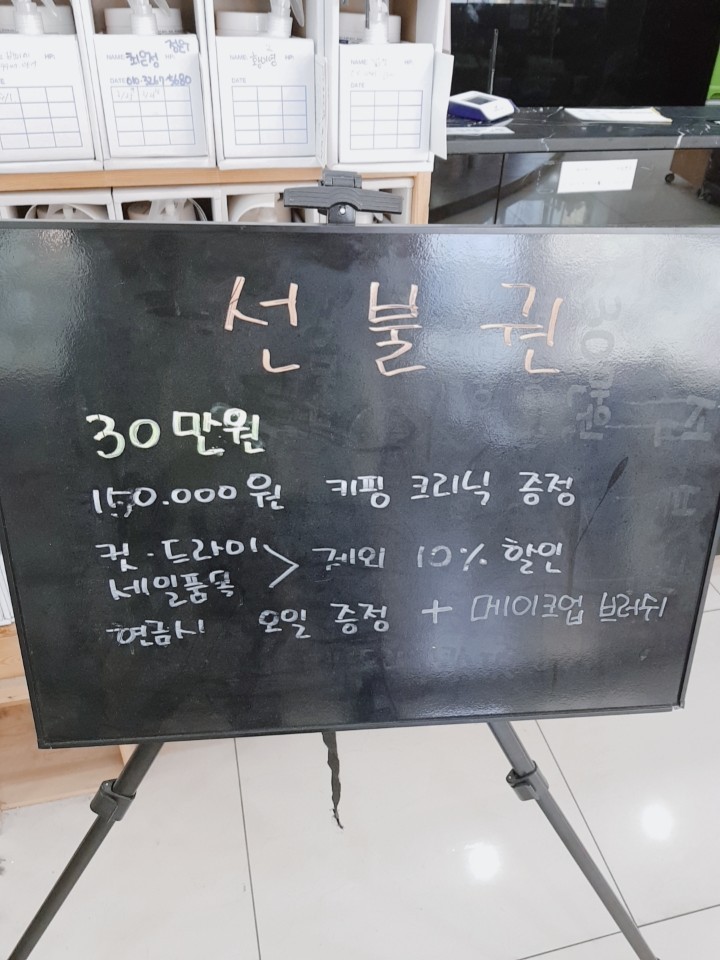 NAME 최은정 HP.
정은?
DATE 010-3267-5680
NAME HP.
DATE
NAME HP.
DATE
선불권
30만원
150.000원 키핑 크리닉 증정
컷·드라이
세일품목 > 제외 10% 할인
현금시 오일 증정 + 메이크업 브러쉬